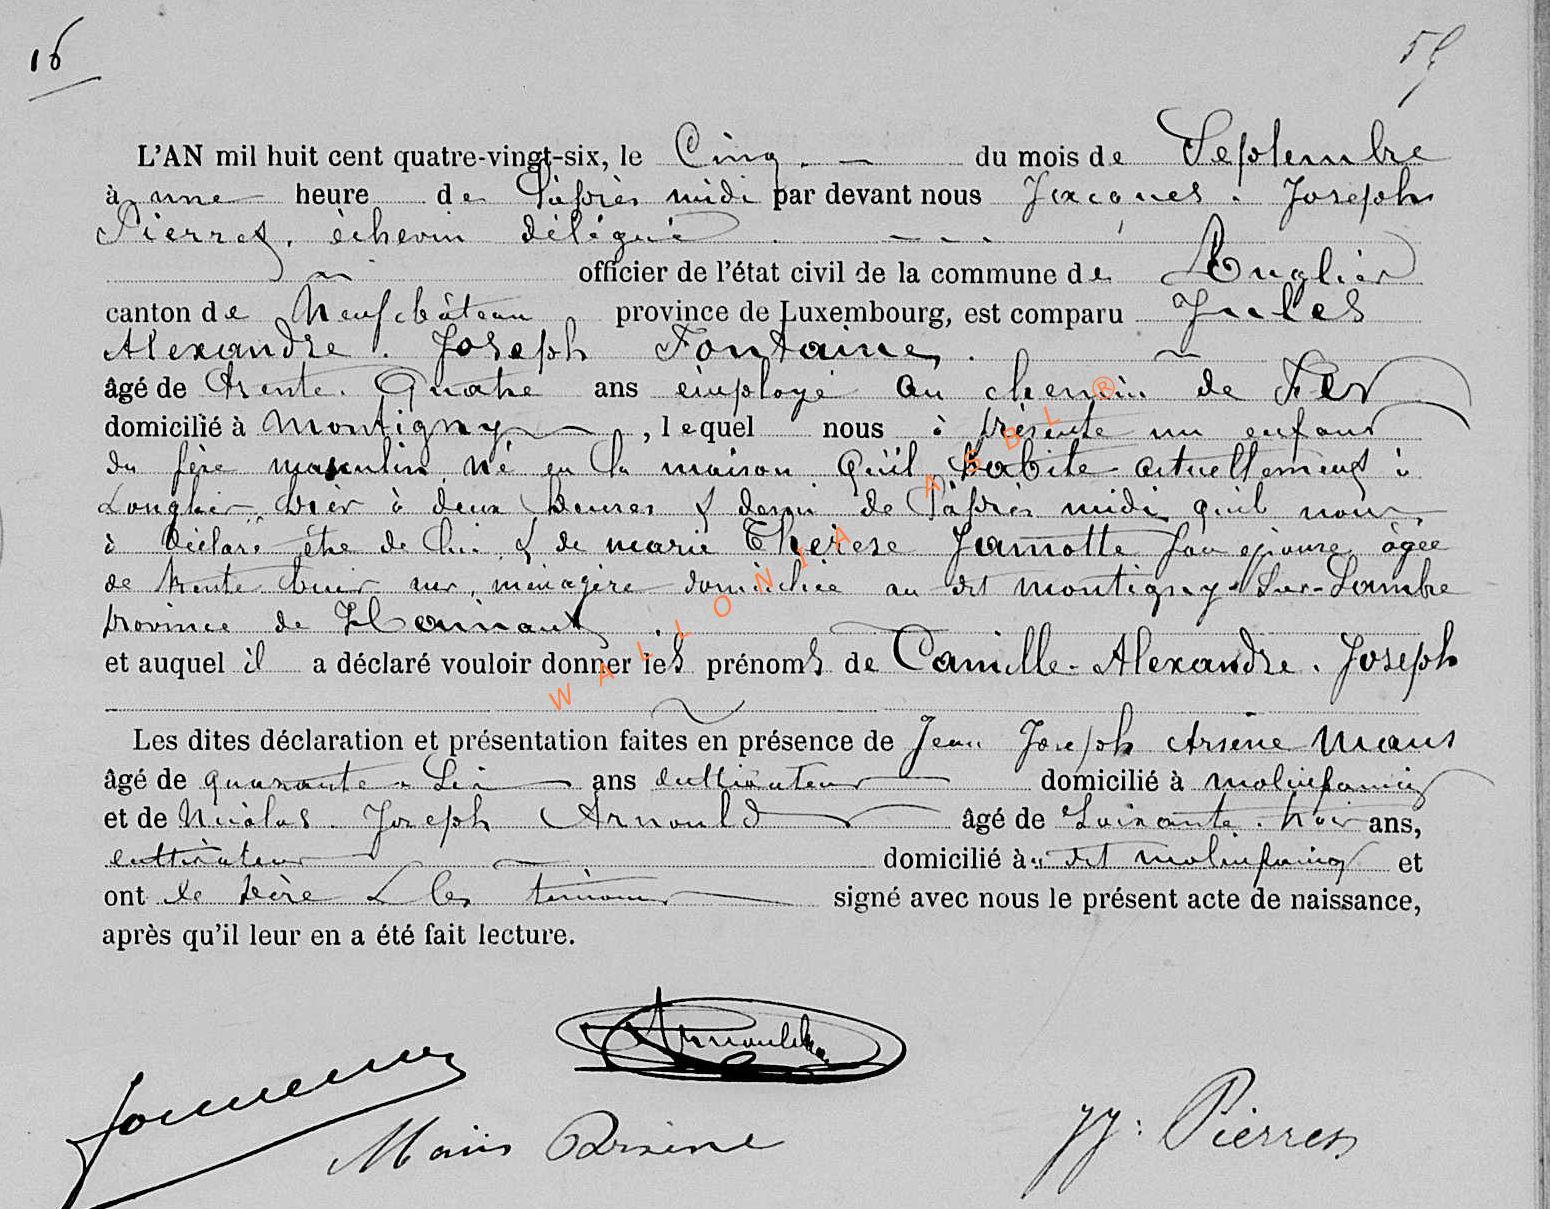 16
L'AN mil huit cent quatre-vingt-six, le Cinq du mois de Septembre
à une heure de l'après midi par devant nous Jacques Joseph
Pierret, échevin délégué
officier de l'état civil de la commune de Longlier
canton de Neufchâteau province de Luxembourg, est comparu Jules
Alexandre Joseph Fontaine,
âgé de trente quatre ans employé au chemin de Fer
domicilié à Montigny, lequel nous à présenté un enfant
du séxe masculin né en la maison qu'il habite actuellement à
Longlier hier à deux heures & demi de l'après midi qu'il nous
à déclaré être de lui & de marie Thérèse Jamotte son épouse âgée
de trente huit ans, ménagère domiciliée au dit montigny-sur-Sambre
province de Hainaut
et auquel il a déclaré vouloir donner les prénoms de Camille Alexandre Joseph
Les dites déclaration et présentation faites en présence de Jean Joseph Arsène Maus
âgé de quarante ans cultivateur domicilié à molinfaing
et de Nicolas Joseph Arnould âgé de Soixante trois ans,
cultivateur domicilié à dit molinfaing et
ont le père & les témoins signé avec nous le présent acte de naissance,
après qu'il leur en a été fait lecture.
Arnould
Arsène
JJ. Pierret
WALLONIA ASBL ®